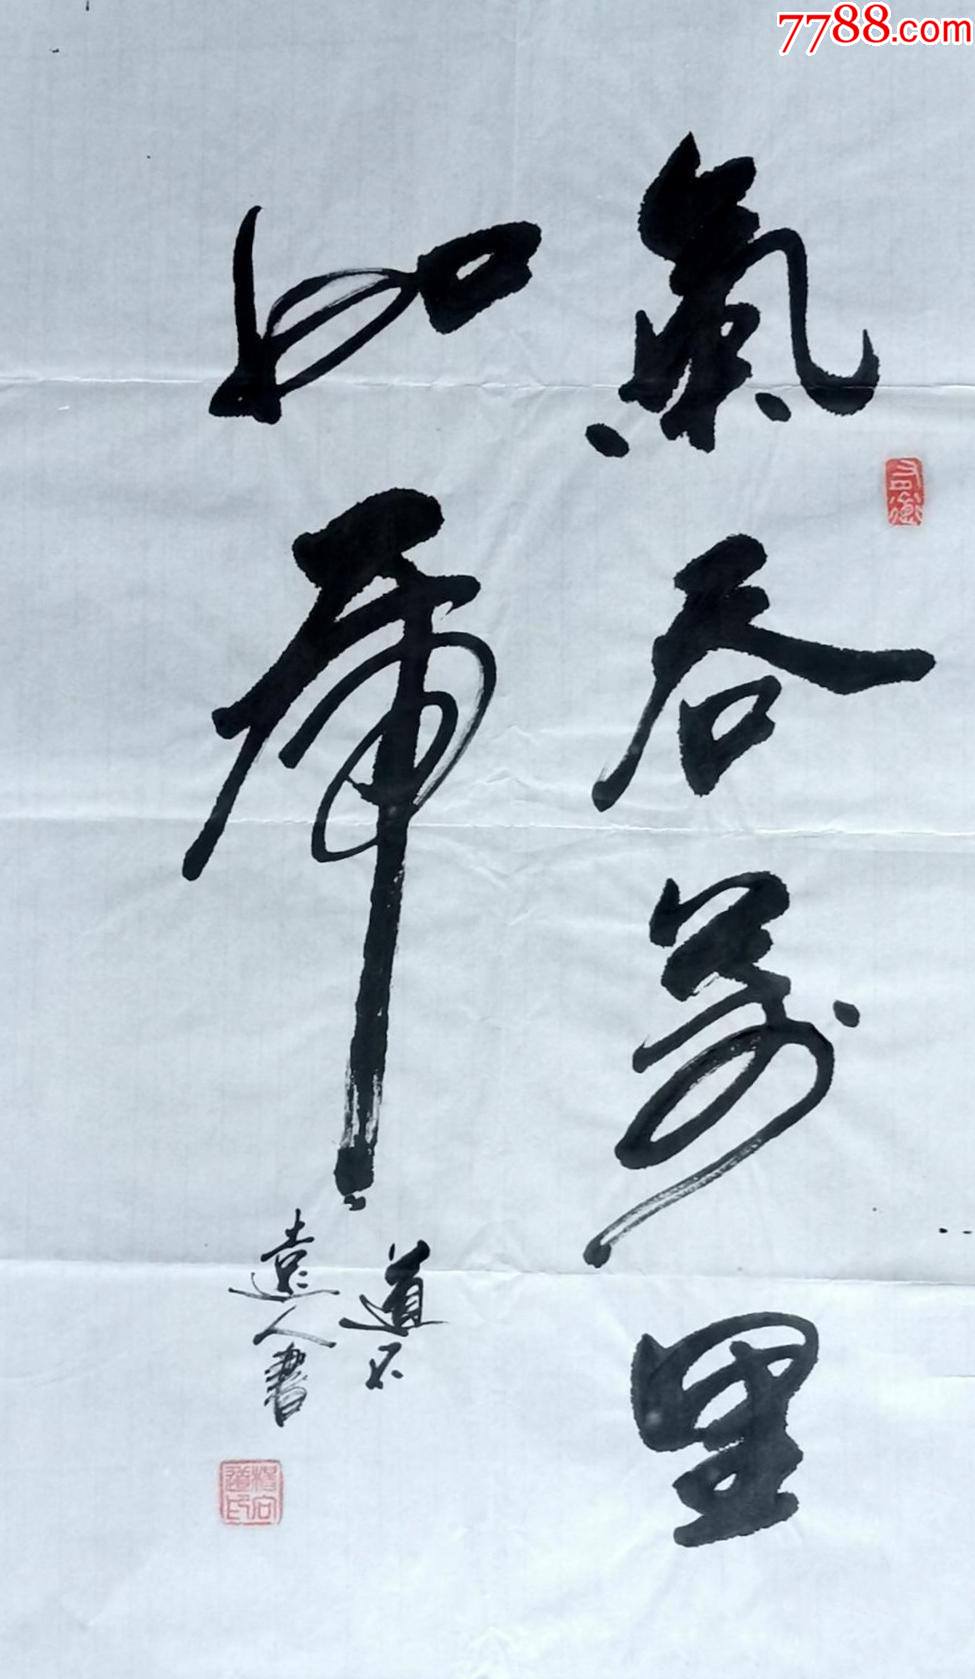 7788.com
氣吞萬里
如虎
道不
遠人書